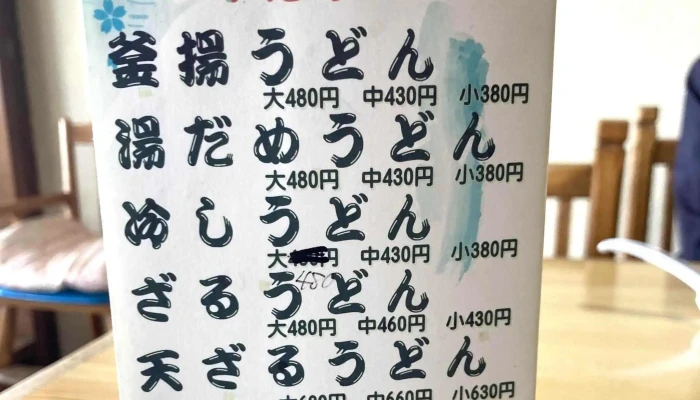 釜揚うどん
大480円 中430円 小380円
湯だめうどん
大480円 中430円 小380円
ぬしうどん
大 円 中430円 小380円
480
ざるうどん
大480円 中460円 小430円
天ざるうどん
中660円 小630円